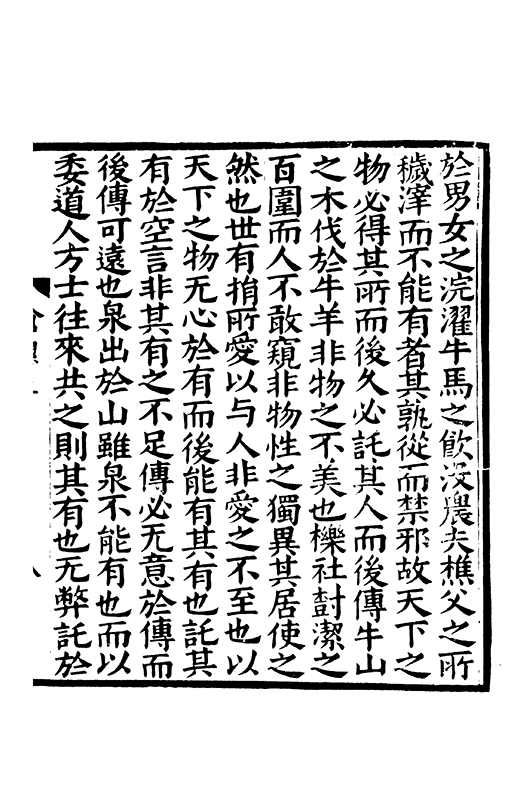 於男女之浣濯牛馬之飲没農夫樵父之所
穢滓而不能有者其孰從而禁邪故天下之
物必得其所而後久必託其人而後傳牛山
之木伐於牛羊非物之不美也櫟社封潔之
百圍而人不敢窺非物性之獨異其居使之
然也世有捐所愛以与人非愛之不至也以
天下之物无心於有而後能有其有也託其
有於空言非其有之不足傳必无意於傳而
後傳可遠也泉出於山雖泉不能有也而以
委道人方士往來共之則其有也无弊託於